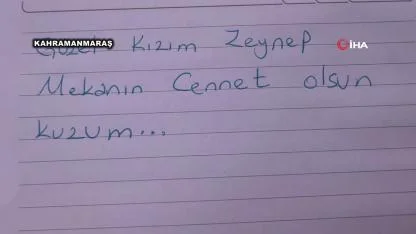 KAHRAMANMARAŞ
İHA
Güzel Kızım Zeynep
Mekanın Cennet olsun
kuzum...